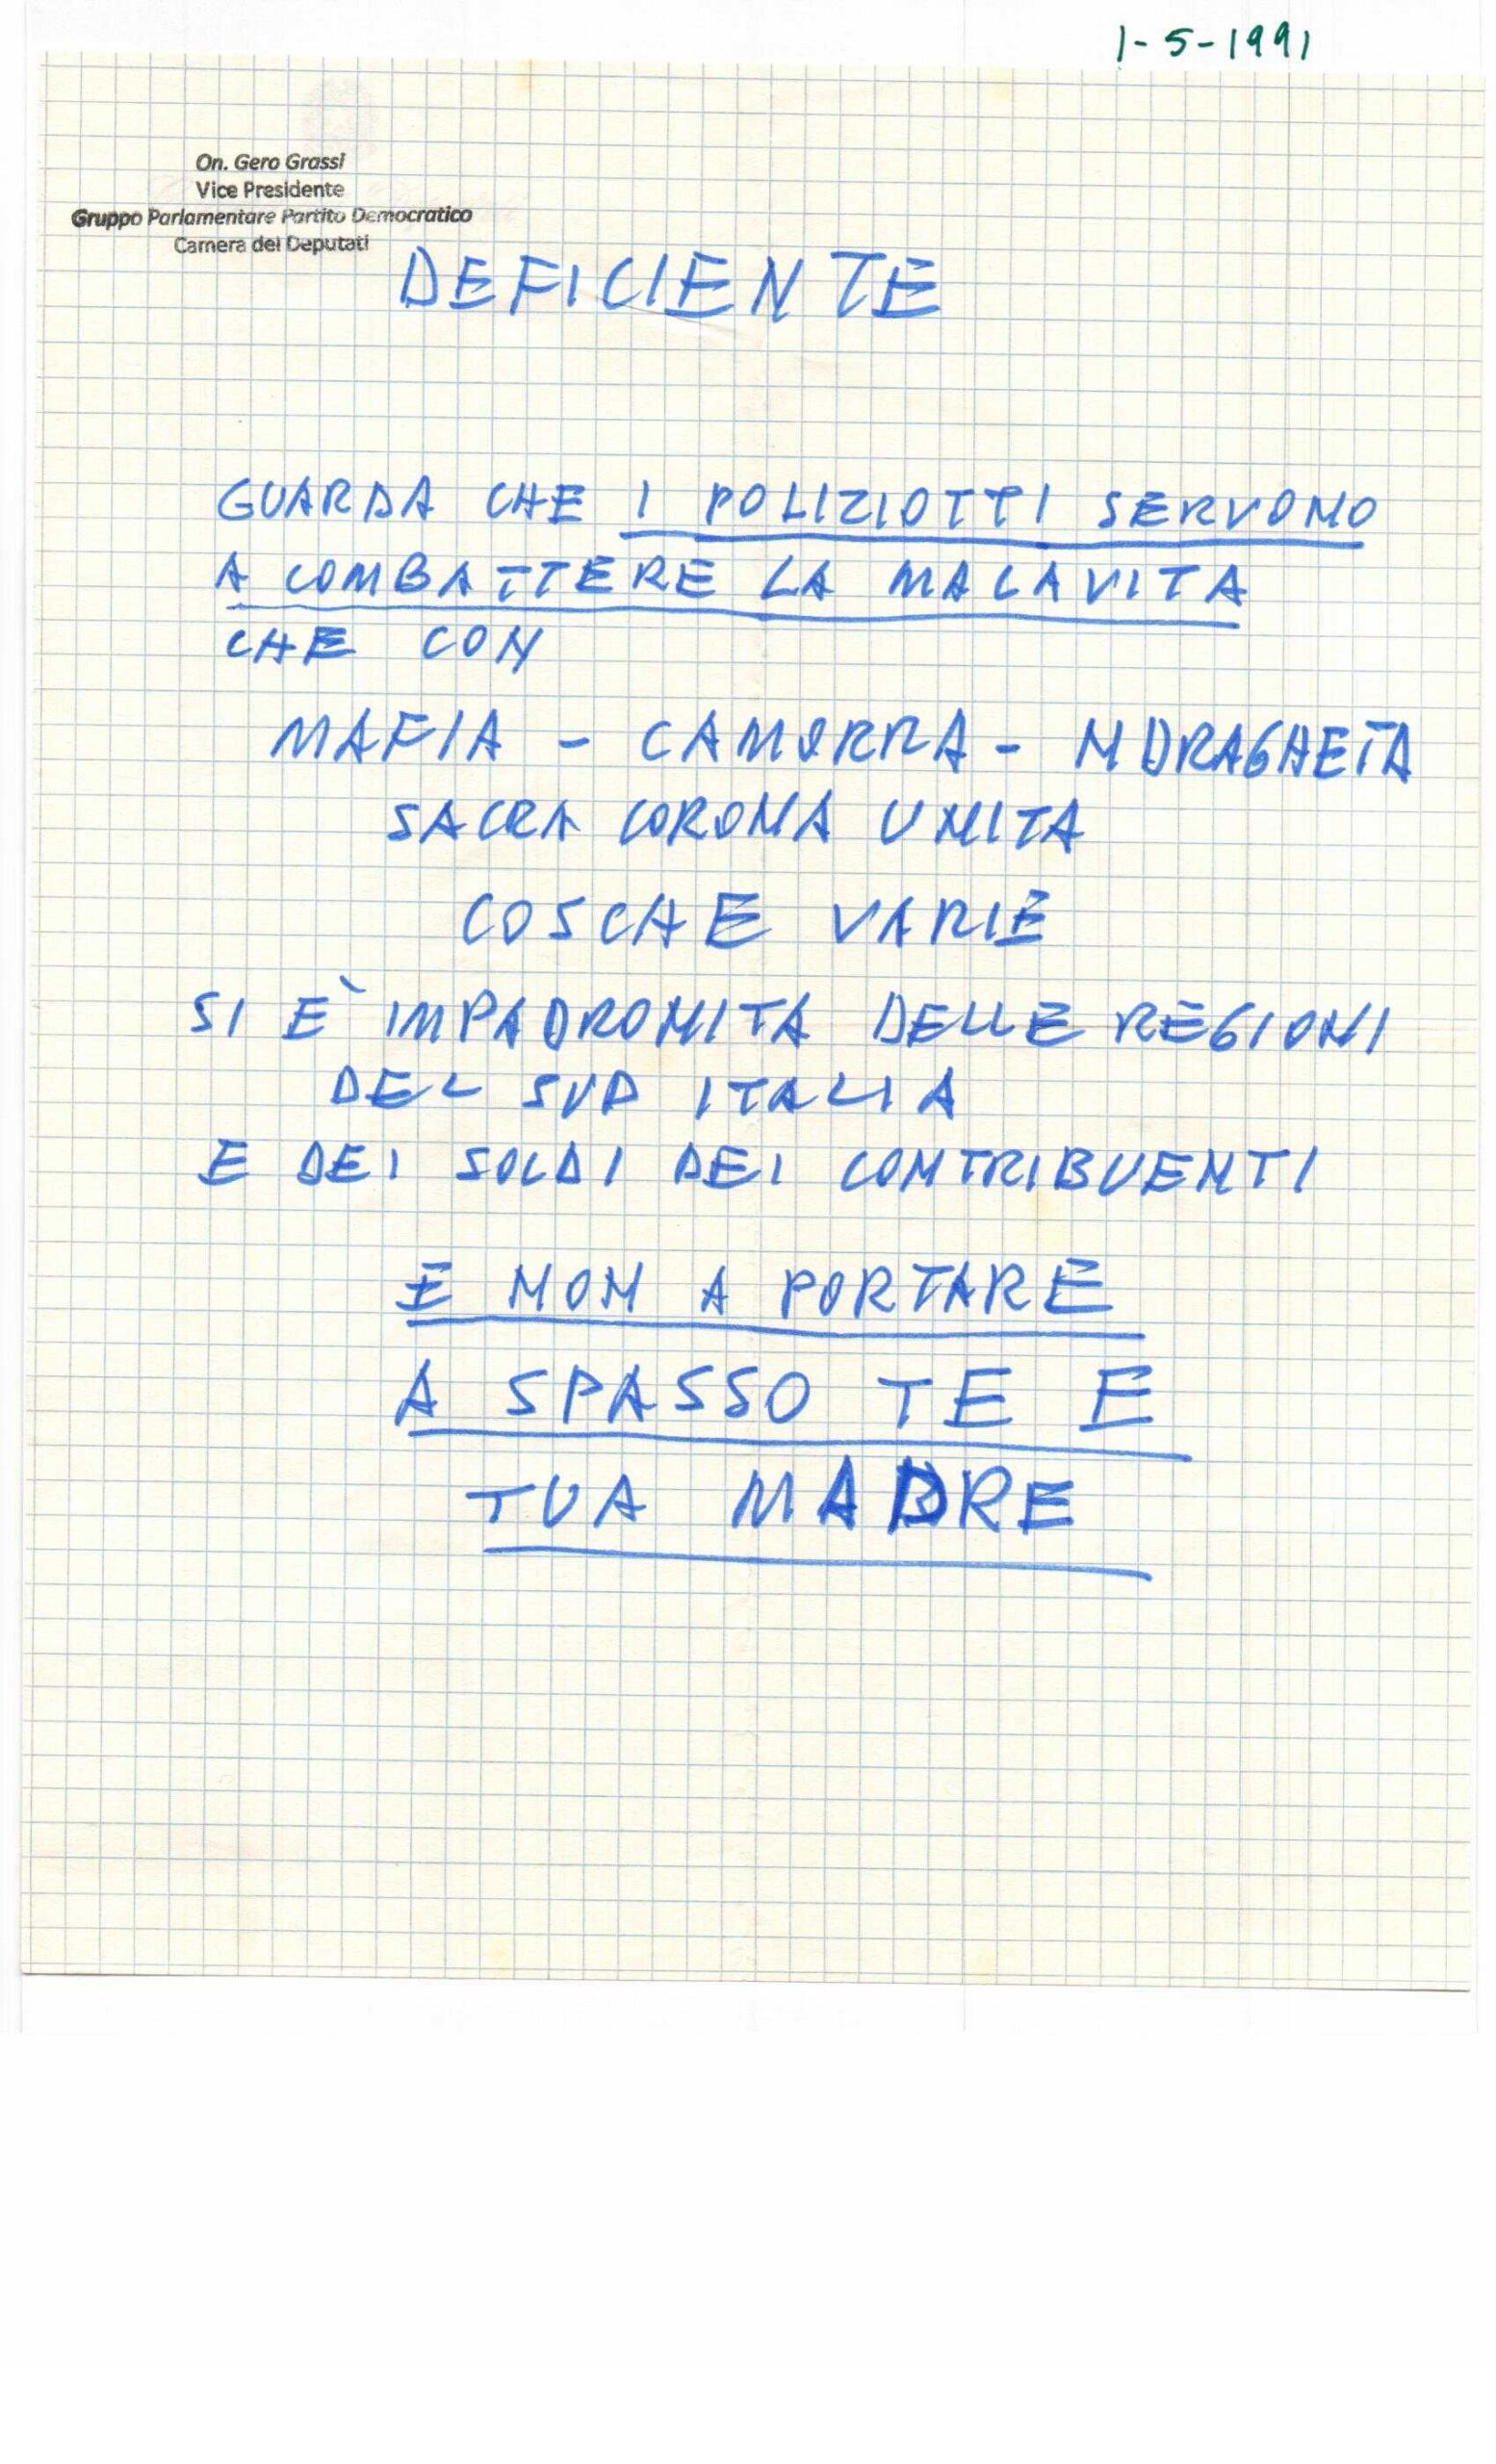 1-5-1991
On. Gero Grassi
Vice Presidente
Gruppo Parlamentare Partito Democratico
Camera dei Deputati
DEFICIENTE
GUARDA CHE I POLIZIOTTI SERVONO
A COMBATTERE LA MALAVITA
CHE CON
MAFIA - CAMORRA - NDRAGHETA
SACRA CORONA UNITA
COSCHE VARIE
SI È IMPADRONITA DELLE REGIONI
DEL SUD ITALIA
E DEI SOLDI DEI CONTRIBUENTI
E NON A PORTARE
A SPASSO TE E
TUA MADRE